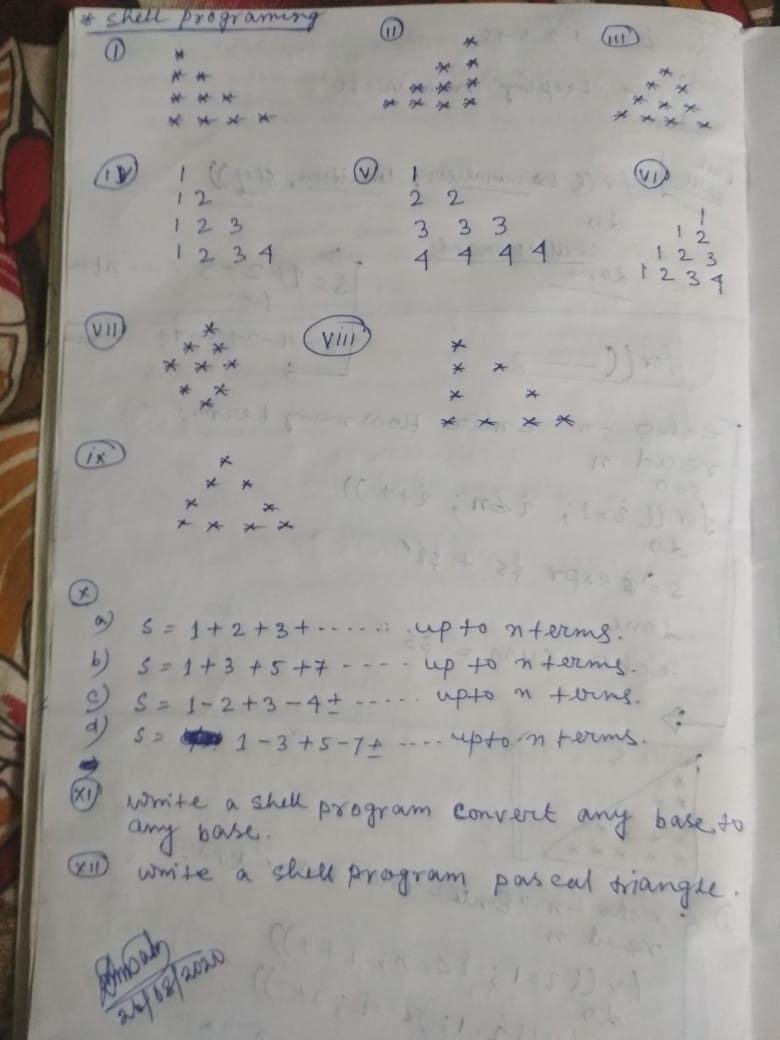 * shell programing
i
*
* *
* * *
* * * *
ii
*
* *
* * *
* * * *
iii
*
* *
* * *
* * * *
iv
1
1 2
1 2 3
1 2 3 4
v
1
2 2
3 3 3
4 4 4 4
vi
1
1 2
1 2 3
1 2 3 4
vii
*
* *
* * *
* *
*
viii
*
* *
* *
* * * *
ix
*
* *
* *
* * * *
x
a) s = 1 + 2 + 3 + ...... upto n terms.
b) s = 1 + 3 + 5 + 7 ..... up to n terms.
c) s = 1 - 2 + 3 - 4 ± ..... upto n terms.
d) s = 1 - 3 + 5 - 7 ± .... upto n terms.
xi write a shell program convert any base to
any base.
xii write a shell program pascal triangle.
26/08/2020